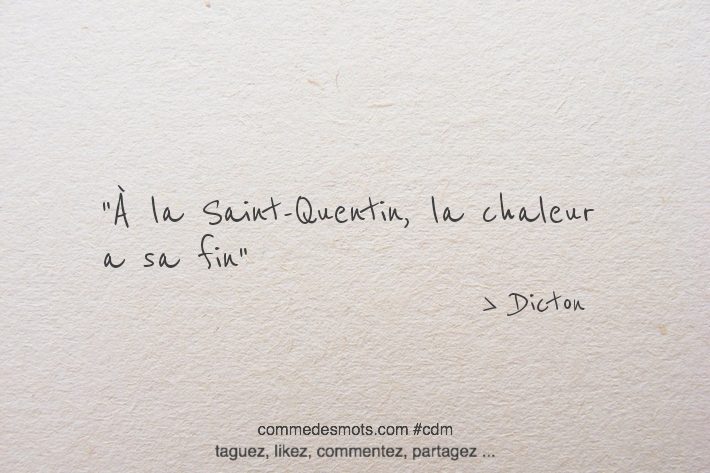 "À la Saint-Quentin, la chaleur
a sa fin"
> Dicton
commedesmots.com #cdm
taguez, likez, commentez, partagez ...